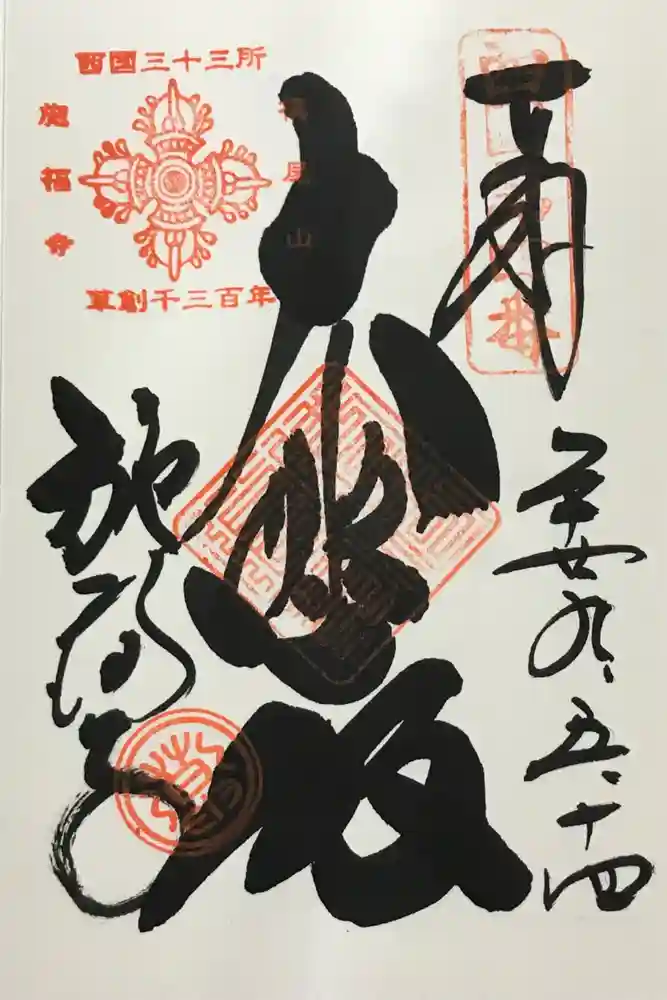 奉拝
平廿九、五、十四
大悲殿
施福寺
西国三十三所
槇尾山
施福寺
草創千三百年